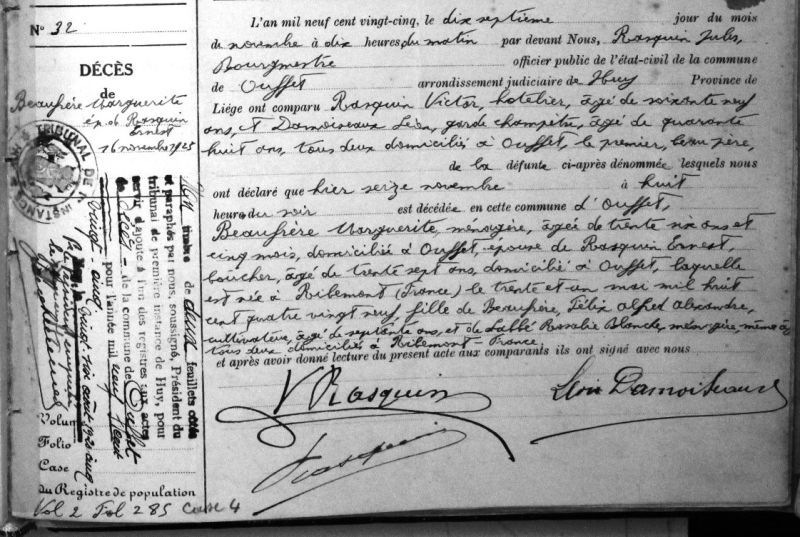 N° 32
DÉCÈS
de
Beaufrère Marguerite
ép. de Rasquin
Ernest
16 novembre 1925
L'an mil neuf cent vingt-cinq, le dix septième jour du mois
de novembre à dix heures du matin par devant Nous, Rasquin Jules
Bourgmestre officier public de l'état-civil de la commune
de Ouffet arrondissement judiciaire de Huy Province de
Liége ont comparu Rasquin Victor, hotelier, âgé de soixante neuf
ans, et Damoiseaux Léon, garde champêtre, âgé de quarante
huit ans, tous deux domiciliés à Ouffet, le premier, beau père,
de la défunte ci-après dénommée lesquels nous
ont déclaré que hier seize novembre à huit
heures du soir est décédée en cette commune d'Ouffet,
Beaufrère Marguerite, ménagère, âgée de trente six ans et
cinq mois, domiciliée à Ouffet, épouse de Rasquin Ernest,
boucher, âgé de trente sept ans, domicilié à Ouffet, laquelle
est née à Ribemont (France) le trente et un mai mil huit
cent quatre vingt neuf, fille de Beaufrère, Félix Alfred Alexandre,
cultivateur, âgé de septante ans, et de Labbé Rosalie Blanche, ménagère, même âge
tous deux domiciliés à Ribemont-France.
et après avoir donné lecture du présent acte aux comparants ils ont signé avec nous
V Rasquin
Léon Damoiseaux
TRIBUNAL DE
INSTANCE
de deux feuillets cotés
et paraphés par nous, soussigné, Président du
tribunal de première instance de Huy, pour
servir d'ajoute à l'un des registres aux actes
de Décès de la commune de Ouffet
pour l'année mil neuf cent
vingt-cinq
Volume
Folio
Case
du Registre de population
Vol 2 Fol 285 Case 4